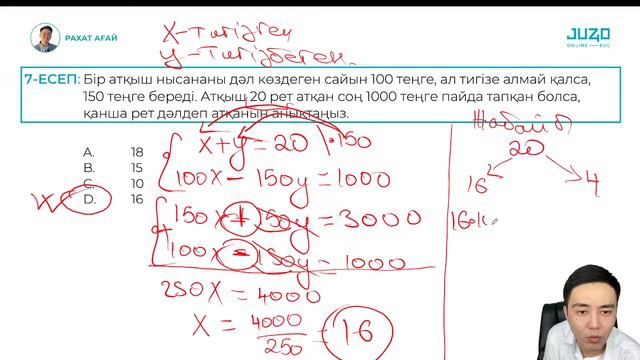 РАХАТ АҒАЙ
JUZ40
ONLINE EDU
x - тигізген
y - тигізбеген.
7-ЕСЕП: Бір атқыш нысананы дәл көздеген сайын 100 теңге, ал тигізе алмай қалса,
150 теңге береді. Атқыш 20 рет атқан соң 1000 теңге пайда тапқан болса,
қанша рет дәлдеп атқанын анықтаңыз.
A. 18
B. 15
C. 10
D. 16
x + y = 20 | · 150
100x - 150y = 1000
150x + 150y = 3000
100x - 150y = 1000
250x = 4000
x = 4000/250 = 16
20
16 4
16·1